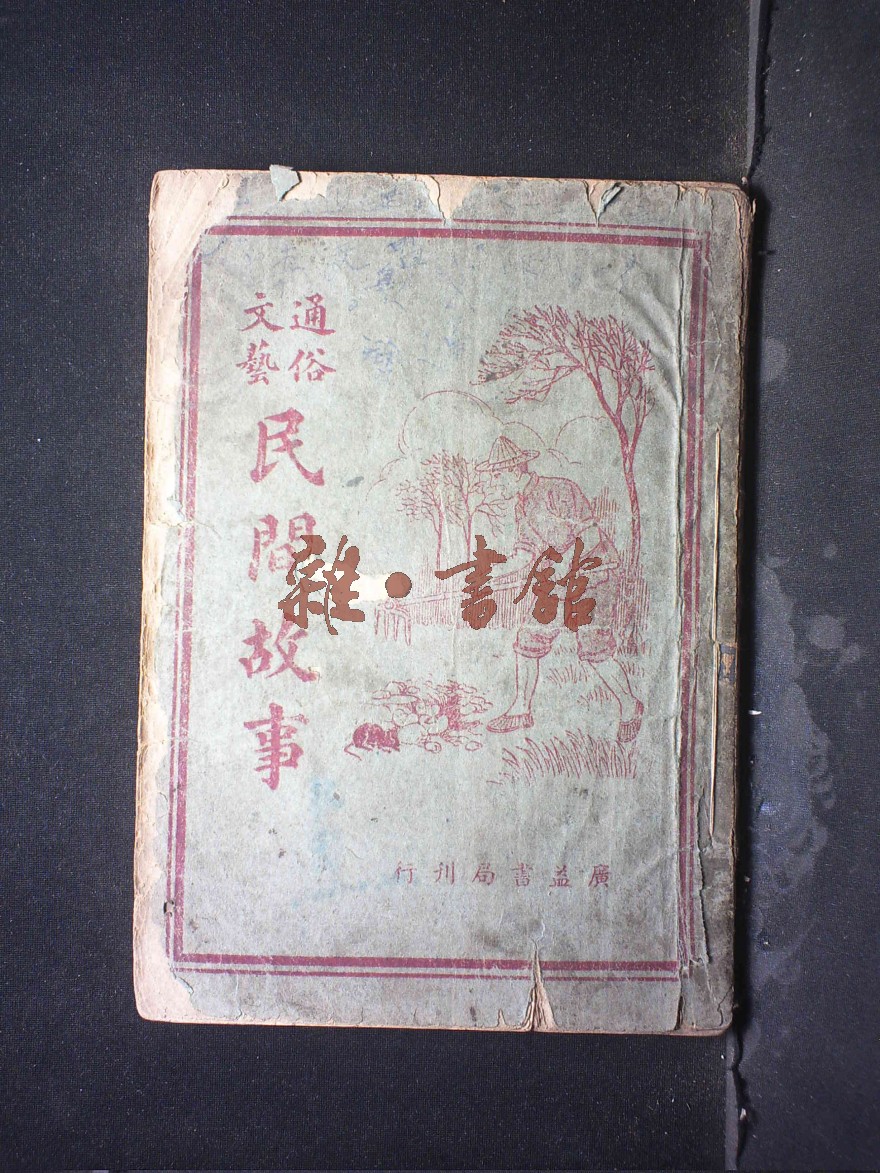 通俗
文藝
民間故事
雜·書館
廣益書局刊行